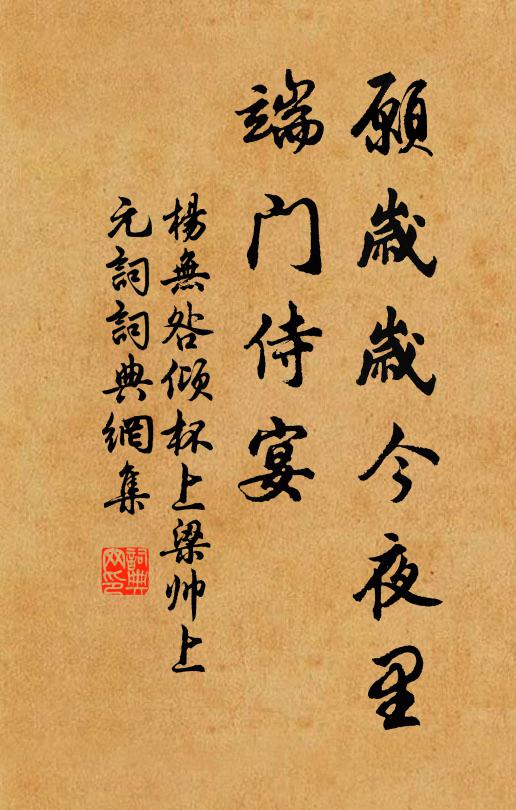 願歲歲今夜里
端門侍宴
楊無咎傾杯上梁帅上
元詞詞典網集
詞典
网印